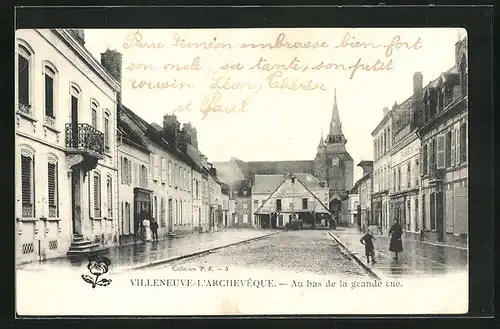 Pierre Siméon embrasse bien fort
son oncle, sa tante, son petit
cousin Léon, Thérèse
et Paul
Collection P. R. - S
VILLENEUVE-L'ARCHEVÊQUE. — Au bas de la grande rue.